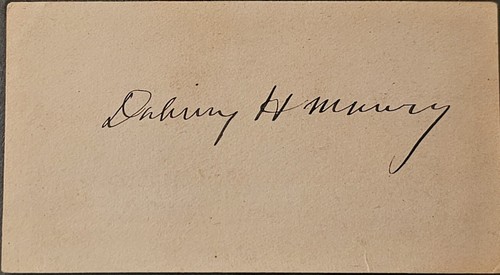 Dabney H Maury